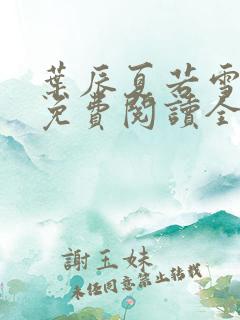 葉辰夏若雪
免費閱讀全
謝玉妹
未經同意禁止轉載